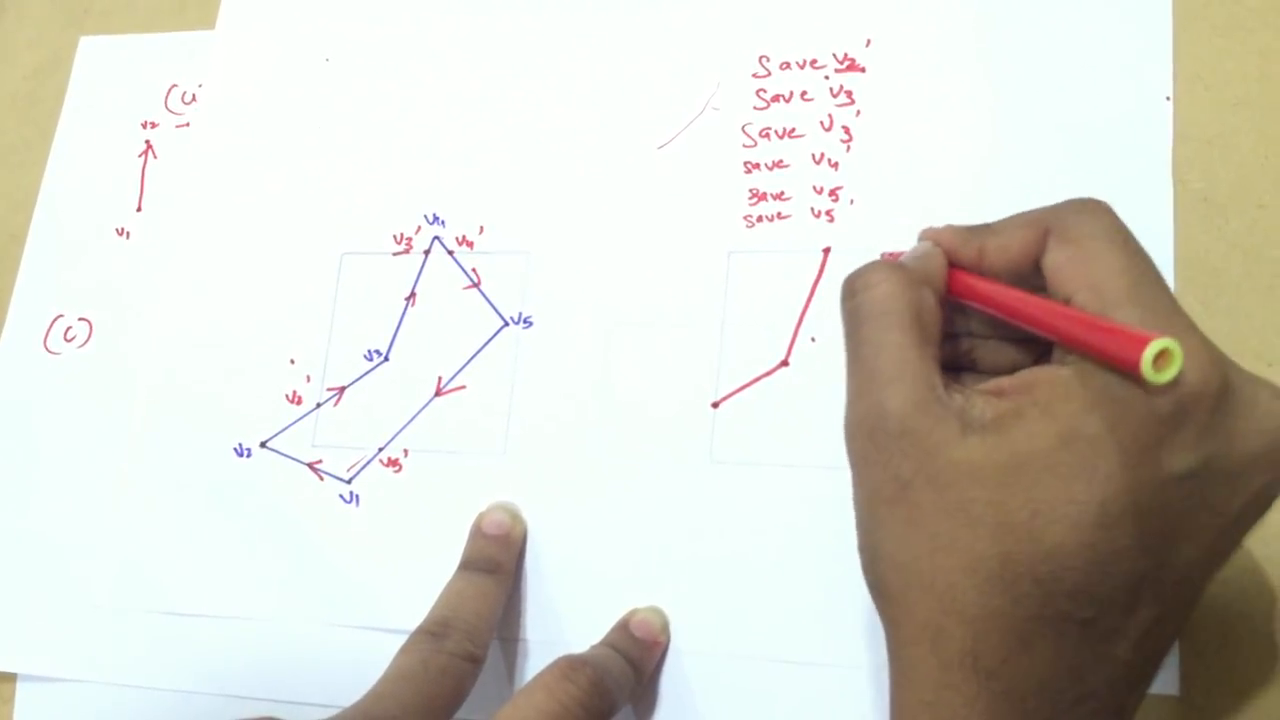 save v2'
save v3
save v3'
save v4'
save v5
save v5'
v2
v1
(c)
v4
v3'
v4'
v5
v3
v2'
v2
v5'
v1